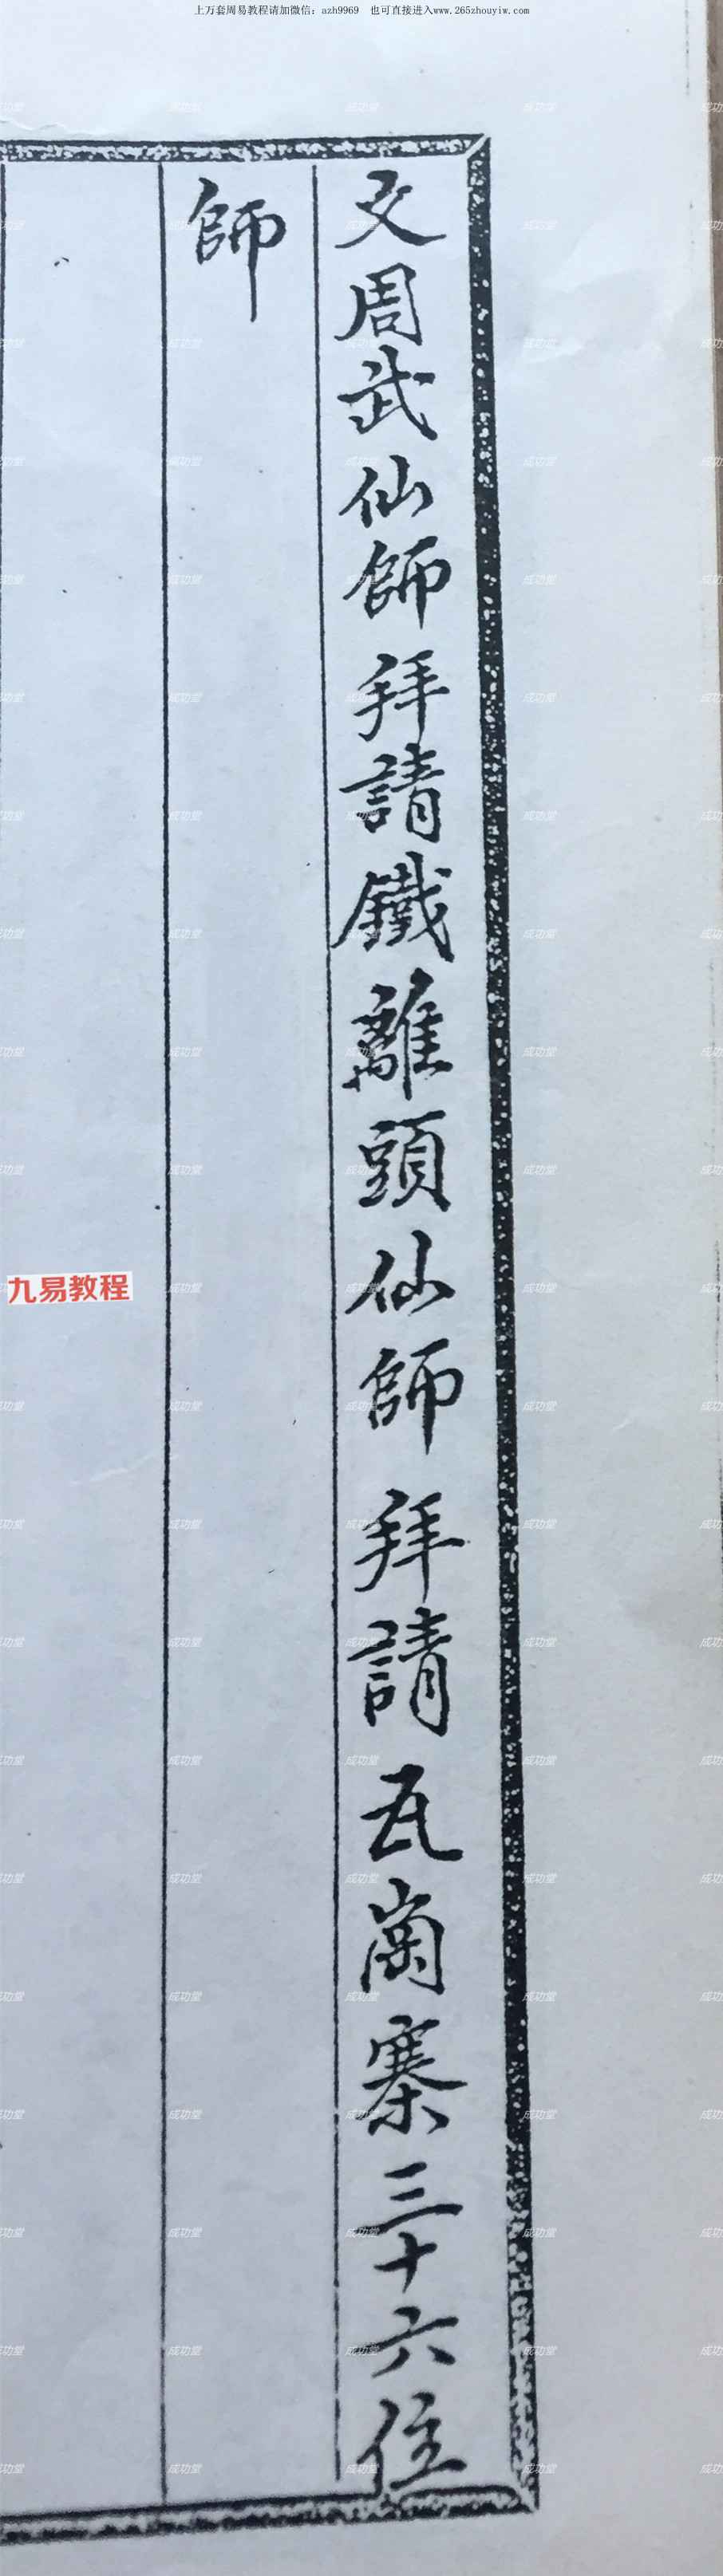 上万套周易教程请加微信：azh9969 也可直接进入www.265zhouyiw.com
文周武仙師拜請鐵離頭仙師拜請瓦崗寨三十六住
師
九易教程
成功堂